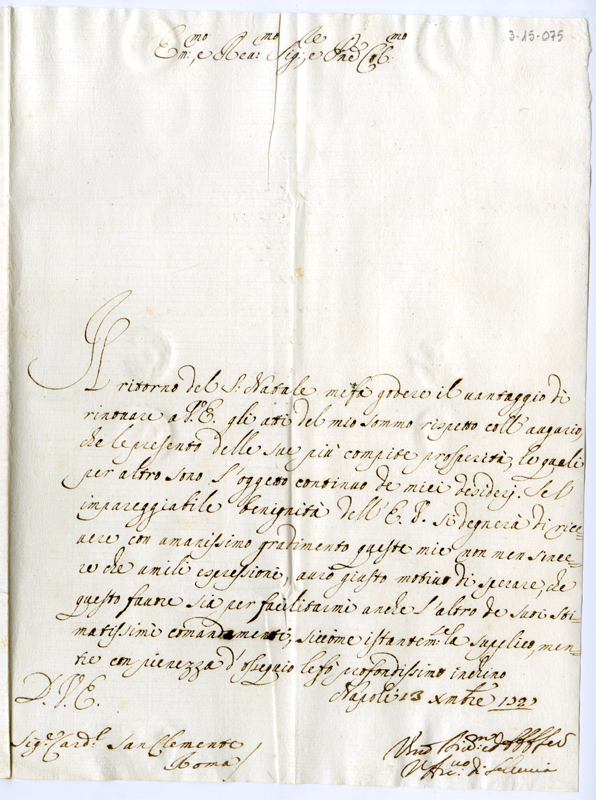 3-15-075
Em:mo, e Reu:mo Sig:re, e Pñe Col:mo
Il ritorno del S. Natale mi fà godere il uantaggio di
rinouare a V. E. gli atti del mio sommo rispetto coll' augurio,
che le presento delle sue più compite prosperità, le quali
per altro sono l'oggetto continuo de miei desiderj. Se l'
impareggiabile benignità dell' E. V. si degnerà di rice-
uere con umanissimo gradimento queste mie non men since-
re che umili espressioni, aurò giusto motiuo di sperare, che
questo fauore sia per facilitarmi anche l'altro de suoi sti-
matissimi comandamenti, siccome istantem:te la supplico, men-
tre con pienezza d'ossequio le fò profondissimo inchino
Napoli 13 Xmbre
D. V. E.
Sig:r Card:l San Clemente
Roma